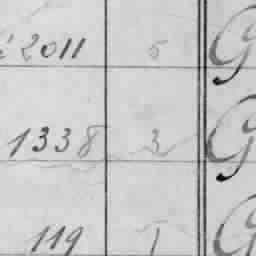 2011 5 G
1338 3 G
119 1 G